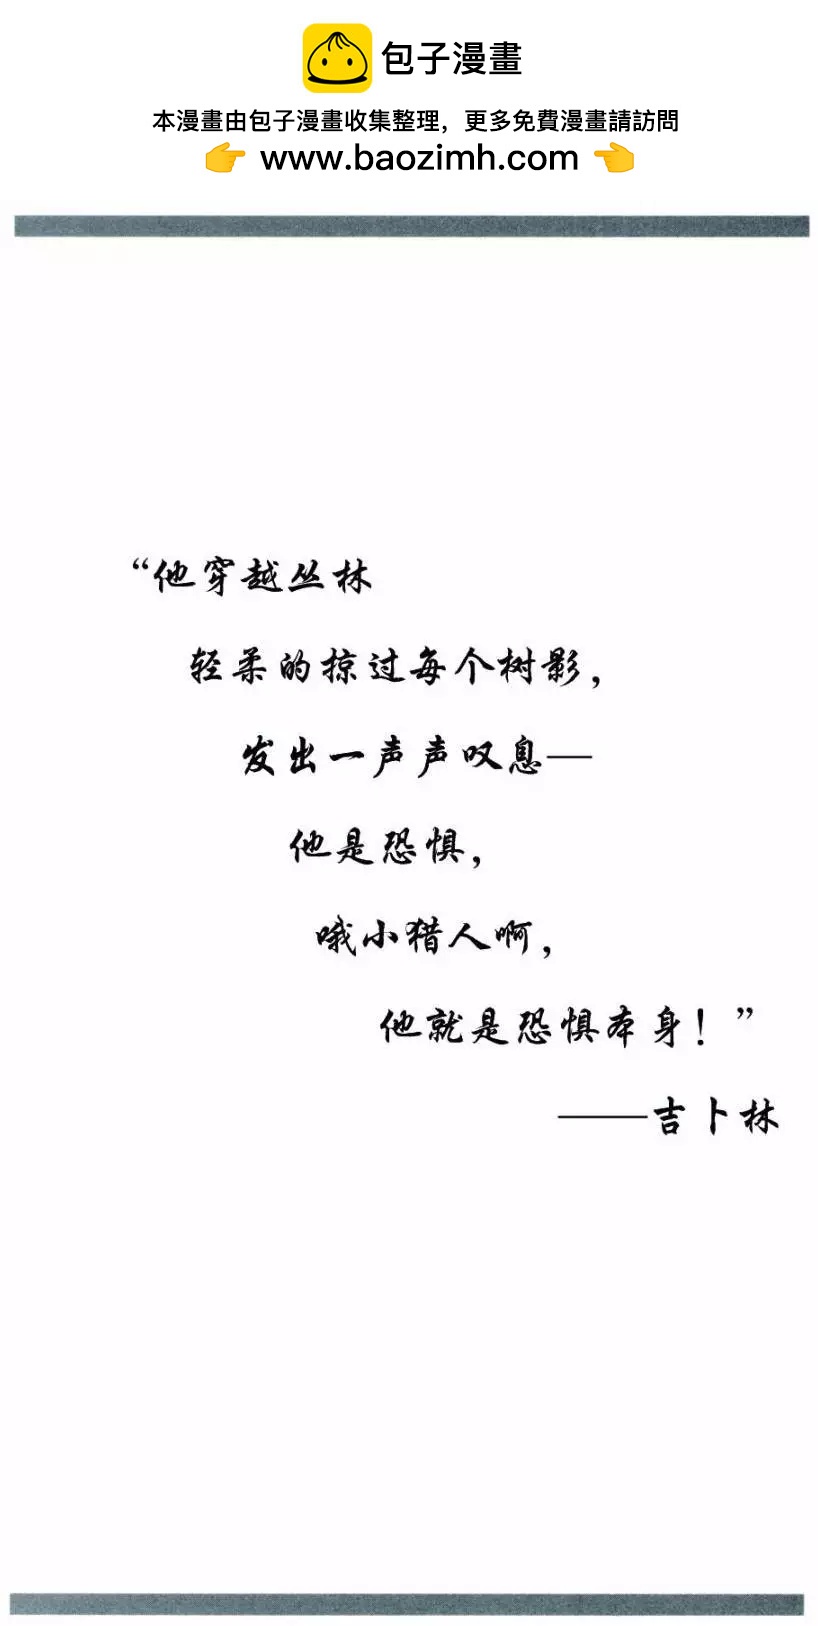 包子漫畫
本漫畫由包子漫畫收集整理，更多免費漫畫請訪問
👉 www.baozimh.com 👈
“他穿越丛林
轻柔的掠过每个树影，
发出一声声叹息—
他是恐惧，
哦小猎人啊，
他就是恐惧本身！”
——吉卜林